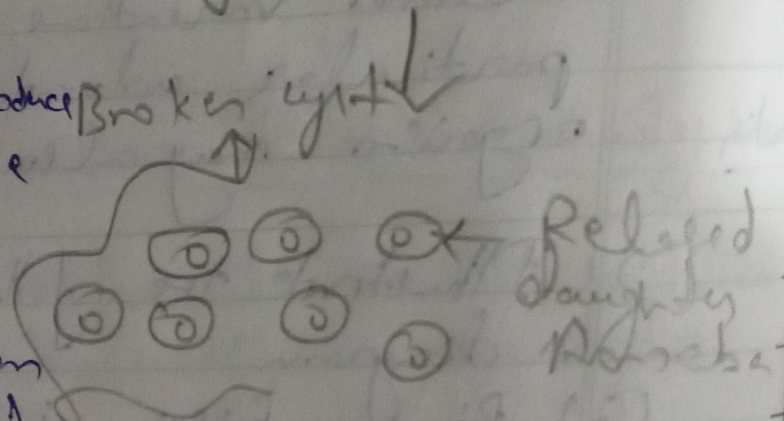 oduce Broken cyst
e
Released
daughter
Amoeba
m